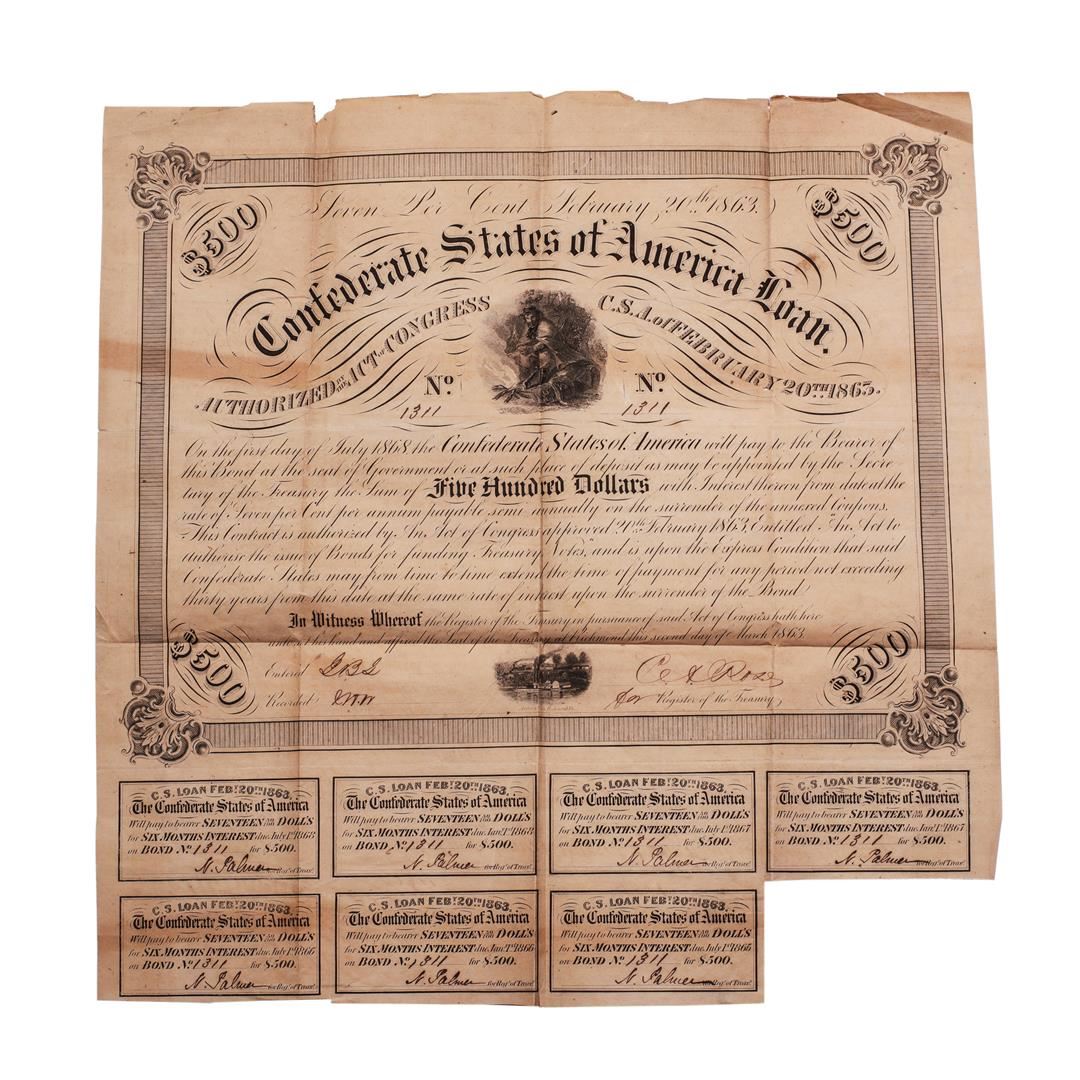 $500
Seven Per Cent February 20th 1863.
$500
Confederate States of America Loan.
AUTHORIZED BY THE ACT of CONGRESS
C.S.A. of FEBRUARY 20TH 1863.
No. 1311
No. 1311
On the first day of July 1868 the Confederate States of America will pay to the Bearer of
this Bond at the seat of Government or at such place of deposit as may be appointed by the Secre
tary of the Treasury the Sum of Five Hundred Dollars with Interest thereon from date at the
rate of Seven per Cent per annum payable semi annually on the surrender of the annexed Coupons.
This Contract is authorized by An Act of Congress approved 20th February 1863, Entitled "An Act to
authorise the issue of Bonds for funding Treasury Notes," and is upon the Express Condition that said
Confederate States may from time to time extend the time of payment for any period not exceeding
thirty years from this date at the same rate of interest upon the surrender of the Bond
In Witness Whereof the Register of the Treasury in pursuance of said Act of Congress hath here
unto set his hand and affixed the Seal of the Treasury at Richmond this second day of March 1863
$500
Entered
Recorded
C A Rose
for Register of the Treasury
$500
C.S. LOAN FEBY. 20TH 1863.
The Confederate States of America
Will pay to bearer SEVENTEEN DOLL'S
for SIX MONTHS INTEREST due July 1st 1868
on BOND No. 1311 for $500.
N. Palmer for Regr. of Treasr.
C.S. LOAN FEBY. 20TH 1863.
The Confederate States of America
Will pay to bearer SEVENTEEN DOLL'S
for SIX MONTHS INTEREST due Jany. 1st 1868
on BOND No. 1311 for $500.
N. Palmer for Regr. of Treasr.
C.S. LOAN FEBY. 20TH 1863.
The Confederate States of America
Will pay to bearer SEVENTEEN DOLL'S
for SIX MONTHS INTEREST due July 1st 1867
on BOND No. 1311 for $500.
N. Palmer for Regr. of Treasr.
C.S. LOAN FEBY. 20TH 1863.
The Confederate States of America
Will pay to bearer SEVENTEEN DOLL'S
for SIX MONTHS INTEREST due Jany. 1st 1867
on BOND No. 1311 for $500.
N. Palmer for Regr. of Treasr.
C.S. LOAN FEBY. 20TH 1863.
The Confederate States of America
Will pay to bearer SEVENTEEN DOLL'S
for SIX MONTHS INTEREST due July 1st 1866
on BOND No. 1311 for $500.
N. Palmer for Regr. of Treasr.
C.S. LOAN FEBY. 20TH 1863.
The Confederate States of America
Will pay to bearer SEVENTEEN DOLL'S
for SIX MONTHS INTEREST due Jany. 1st 1866
on BOND No. 1311 for $500.
N. Palmer for Regr. of Treasr.
C.S. LOAN FEBY. 20TH 1863.
The Confederate States of America
Will pay to bearer SEVENTEEN DOLL'S
for SIX MONTHS INTEREST due July 1st 1866
on BOND No. 1311 for $500.
N. Palmer for Regr. of Treasr.